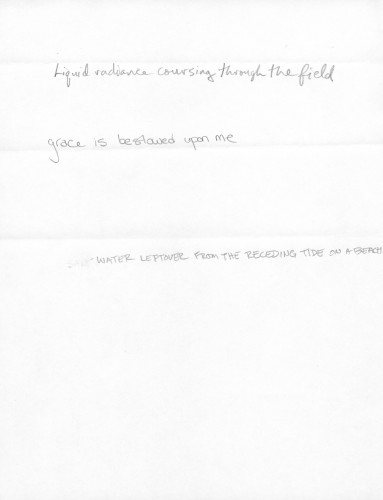 Liquid radiance coursing through the field
grace is bestowed upon me
- WATER LEFTOVER FROM THE RECEDING TIDE ON A BEACH